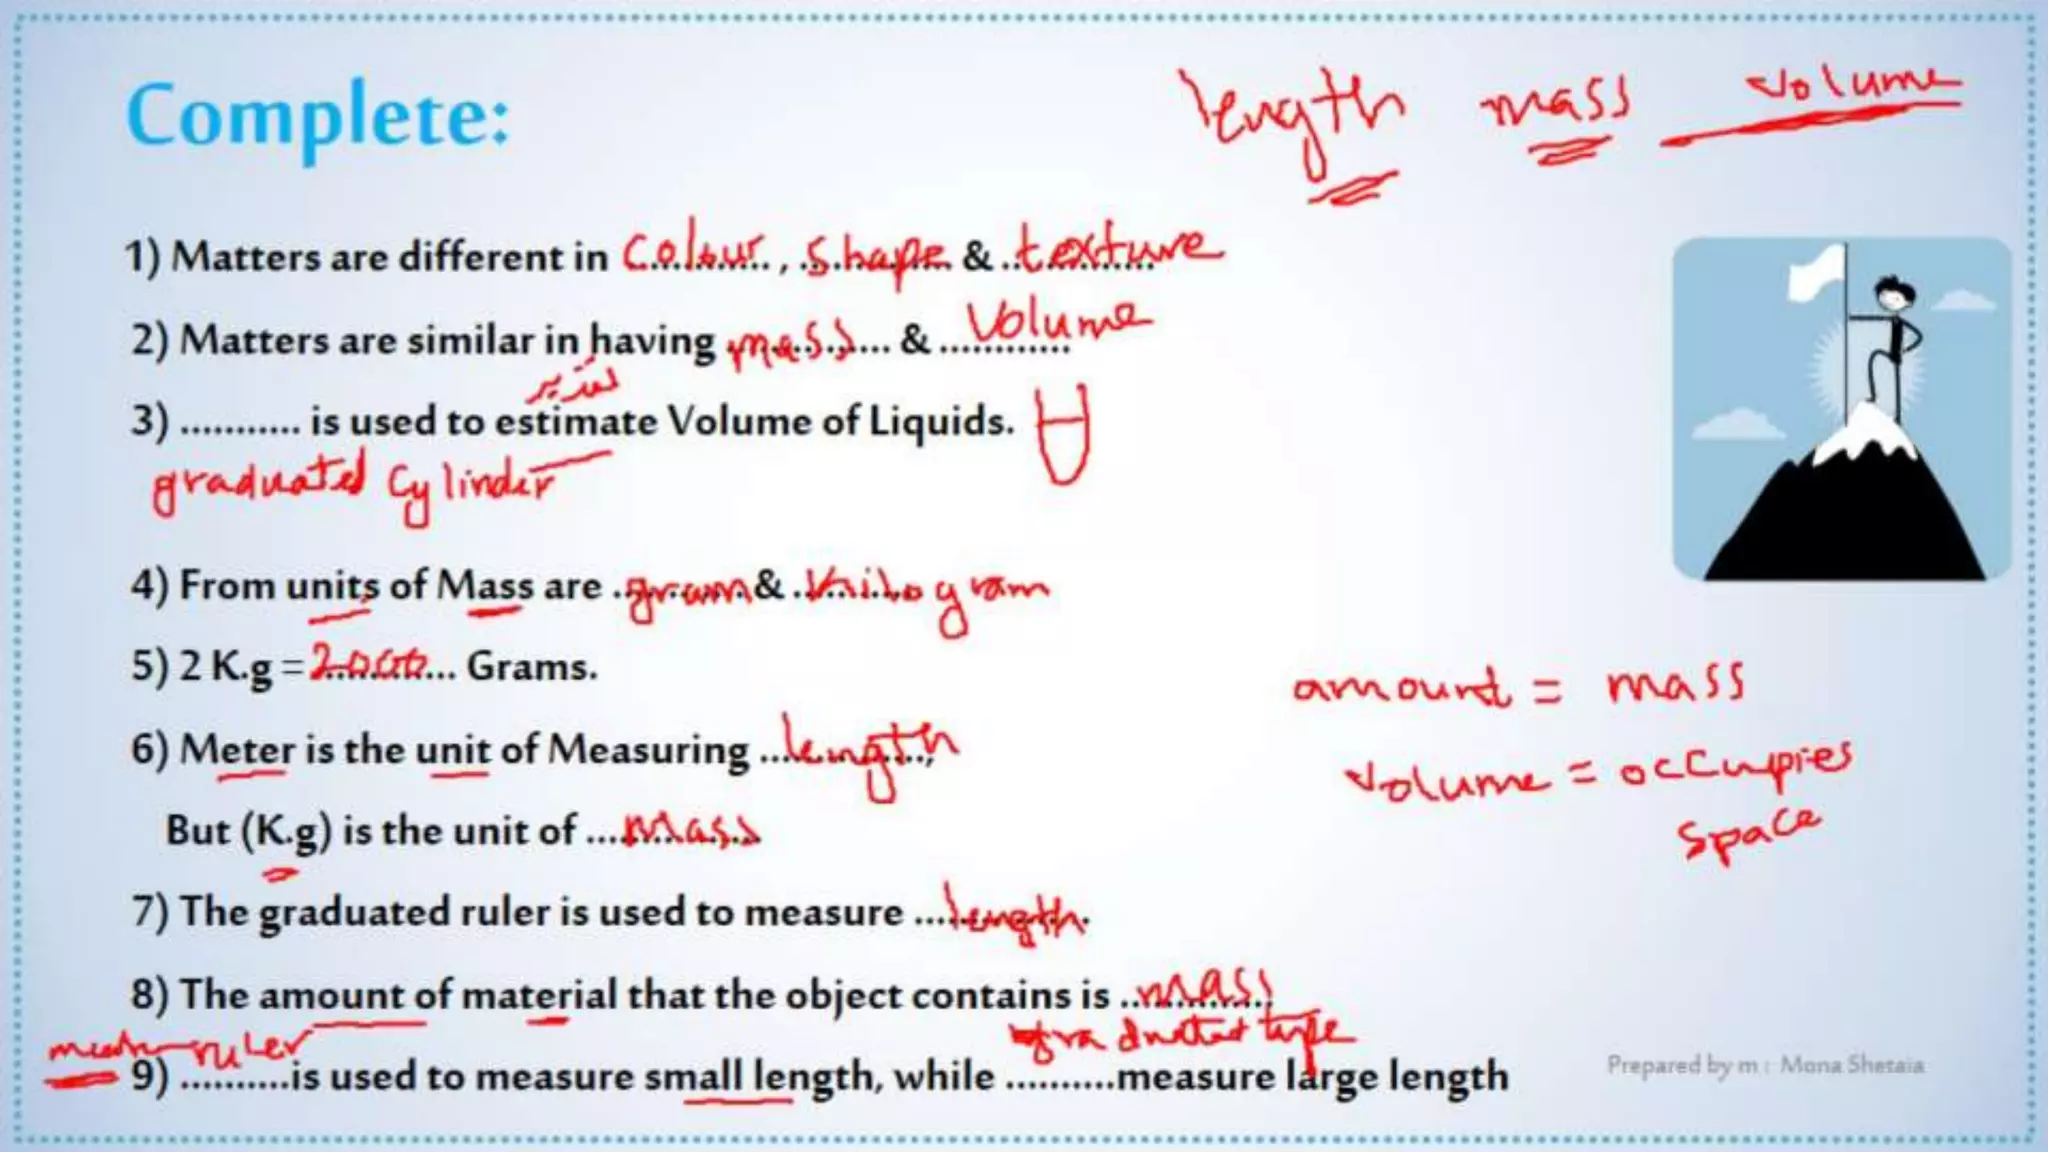 length mass volume
Complete:
1) Matters are different in colour, shape & texture
2) Matters are similar in having mass & Volume
3) ........... is used to estimate Volume of Liquids.
graduated Cylinder
4) From units of Mass are gram & kilogram
5) 2 K.g = 2000 Grams.
amount = mass
6) Meter is the unit of Measuring length,
volume = occupies
space
But (K.g) is the unit of mass
7) The graduated ruler is used to measure length.
8) The amount of material that the object contains is mass
ruler graduated type
9) ..........is used to measure small length, while ..........measure large length
Prepared by m : Mona Shetaia